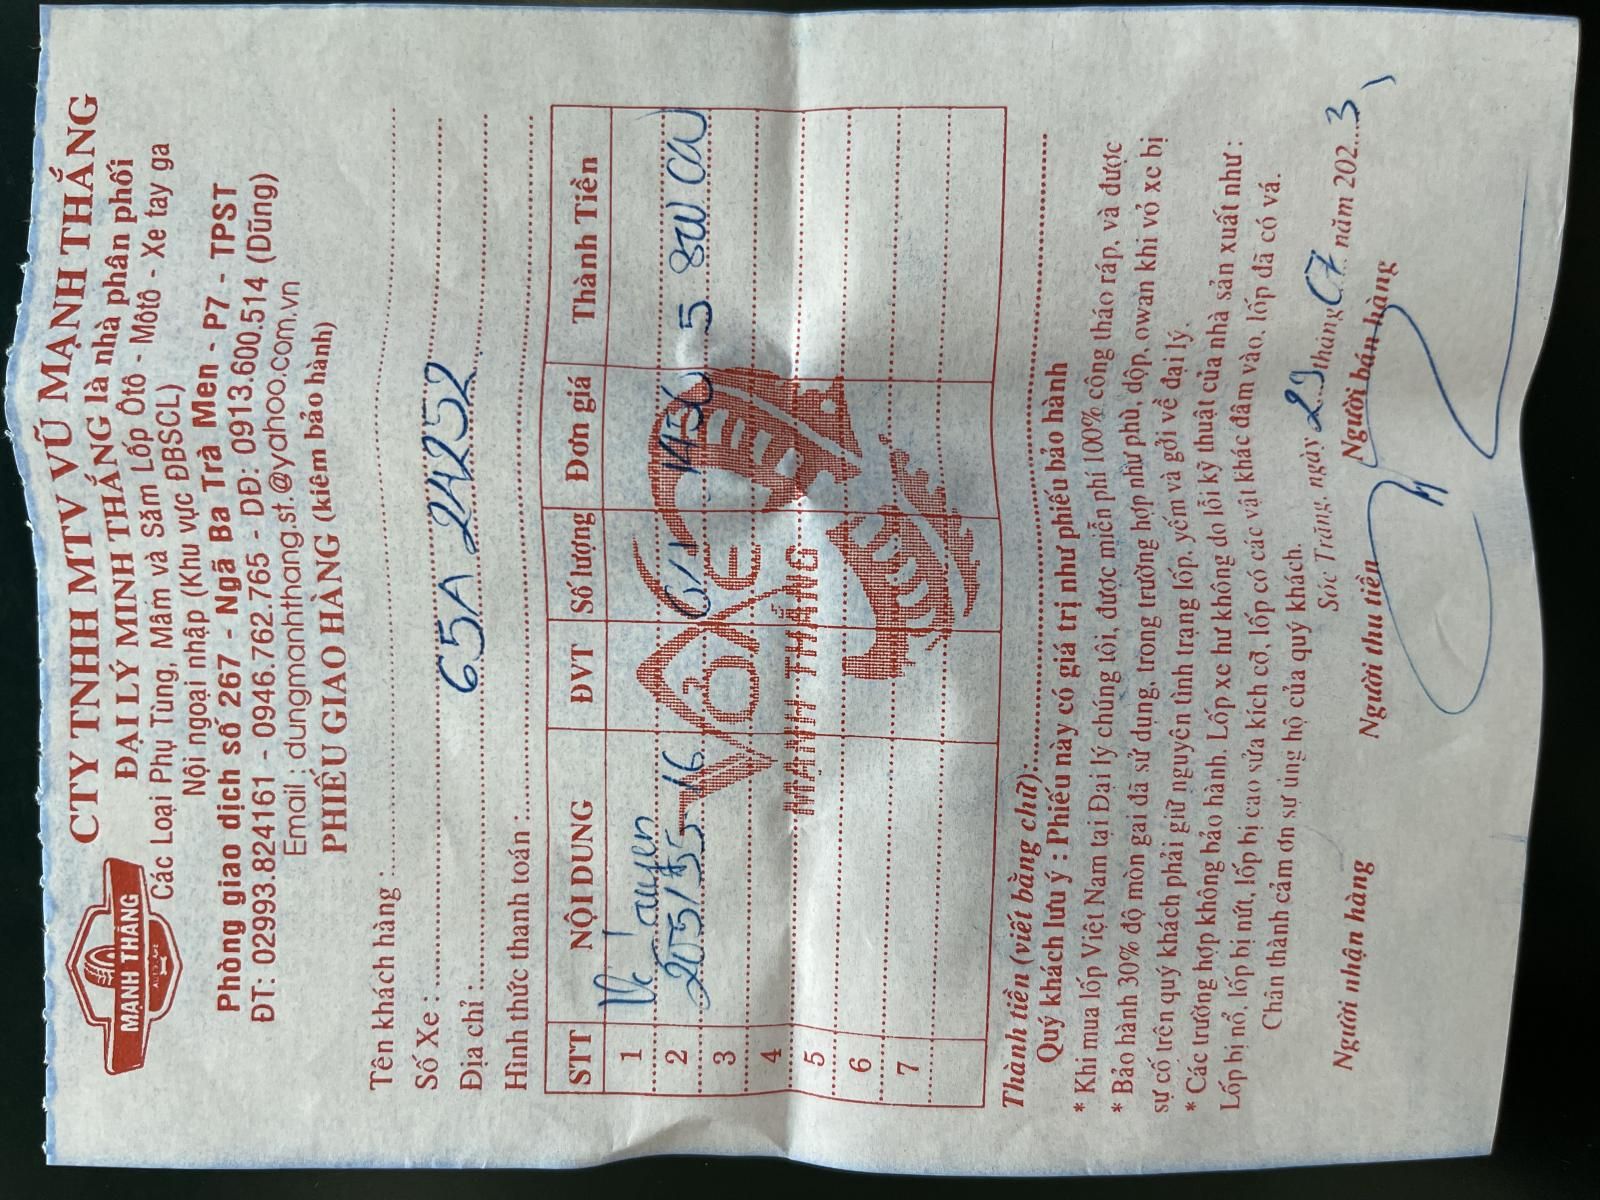 MẠNH THẮNG
CTY TNHH MTV VŨ MẠNH THẮNG
ĐẠI LÝ MINH THẮNG là nhà phân phối
Các Loại Phụ Tung, Mâm và Săm Lốp Ôtô - Môtô - Xe tay ga
Nội ngoại nhập (Khu vực ĐBSCL)
Phòng giao dịch số 267 - Ngã Ba Trà Men - P7 - TPST
ĐT: 02993.824161 - 0946.762.765 - DĐ: 0913.600.514 (Dũng)
Email : dungmanhthang.st.@yahoo.com.vn
PHIẾU GIAO HÀNG (kiêm bảo hành)
Tên khách hàng :
Số Xe : 65A 24252
Địa chỉ :
Hình thức thanh toán :
STT NỘI DUNG ĐVT Số lượng Đơn giá Thành Tiền
1
2 205/55 16 1450 5 800 000
3
4
5
6
7
MẠNH THẮNG
Thành tiền (viết bằng chữ):
Quý khách lưu ý : Phiếu này có giá trị như phiếu bảo hành
* Khi mua lốp Việt Nam tại Đại lý chúng tôi, được miễn phí 100% công tháo ráp, và được
* Bảo hành 30% độ mòn gai đã sử dụng, trong trường hợp như phù, dộp, owan khi vỏ xe bị
sự cố trên quý khách phải giữ nguyên tình trạng lốp, yếm và gởi về đại lý.
* Các trường hợp không bảo hành. Lốp xe hư không do lỗi kỹ thuật của nhà sản xuất như :
Lốp bị nổ, lốp bị nứt, lốp bị cao sửa kích cỡ, lốp có các vật khác đâm vào, lốp đã có vá.
Chân thành cảm ơn sự ủng hộ của quý khách.
Sóc Trăng, ngày 29 tháng 07 năm 2023
Người nhận hàng Người thu tiền Người bán hàng